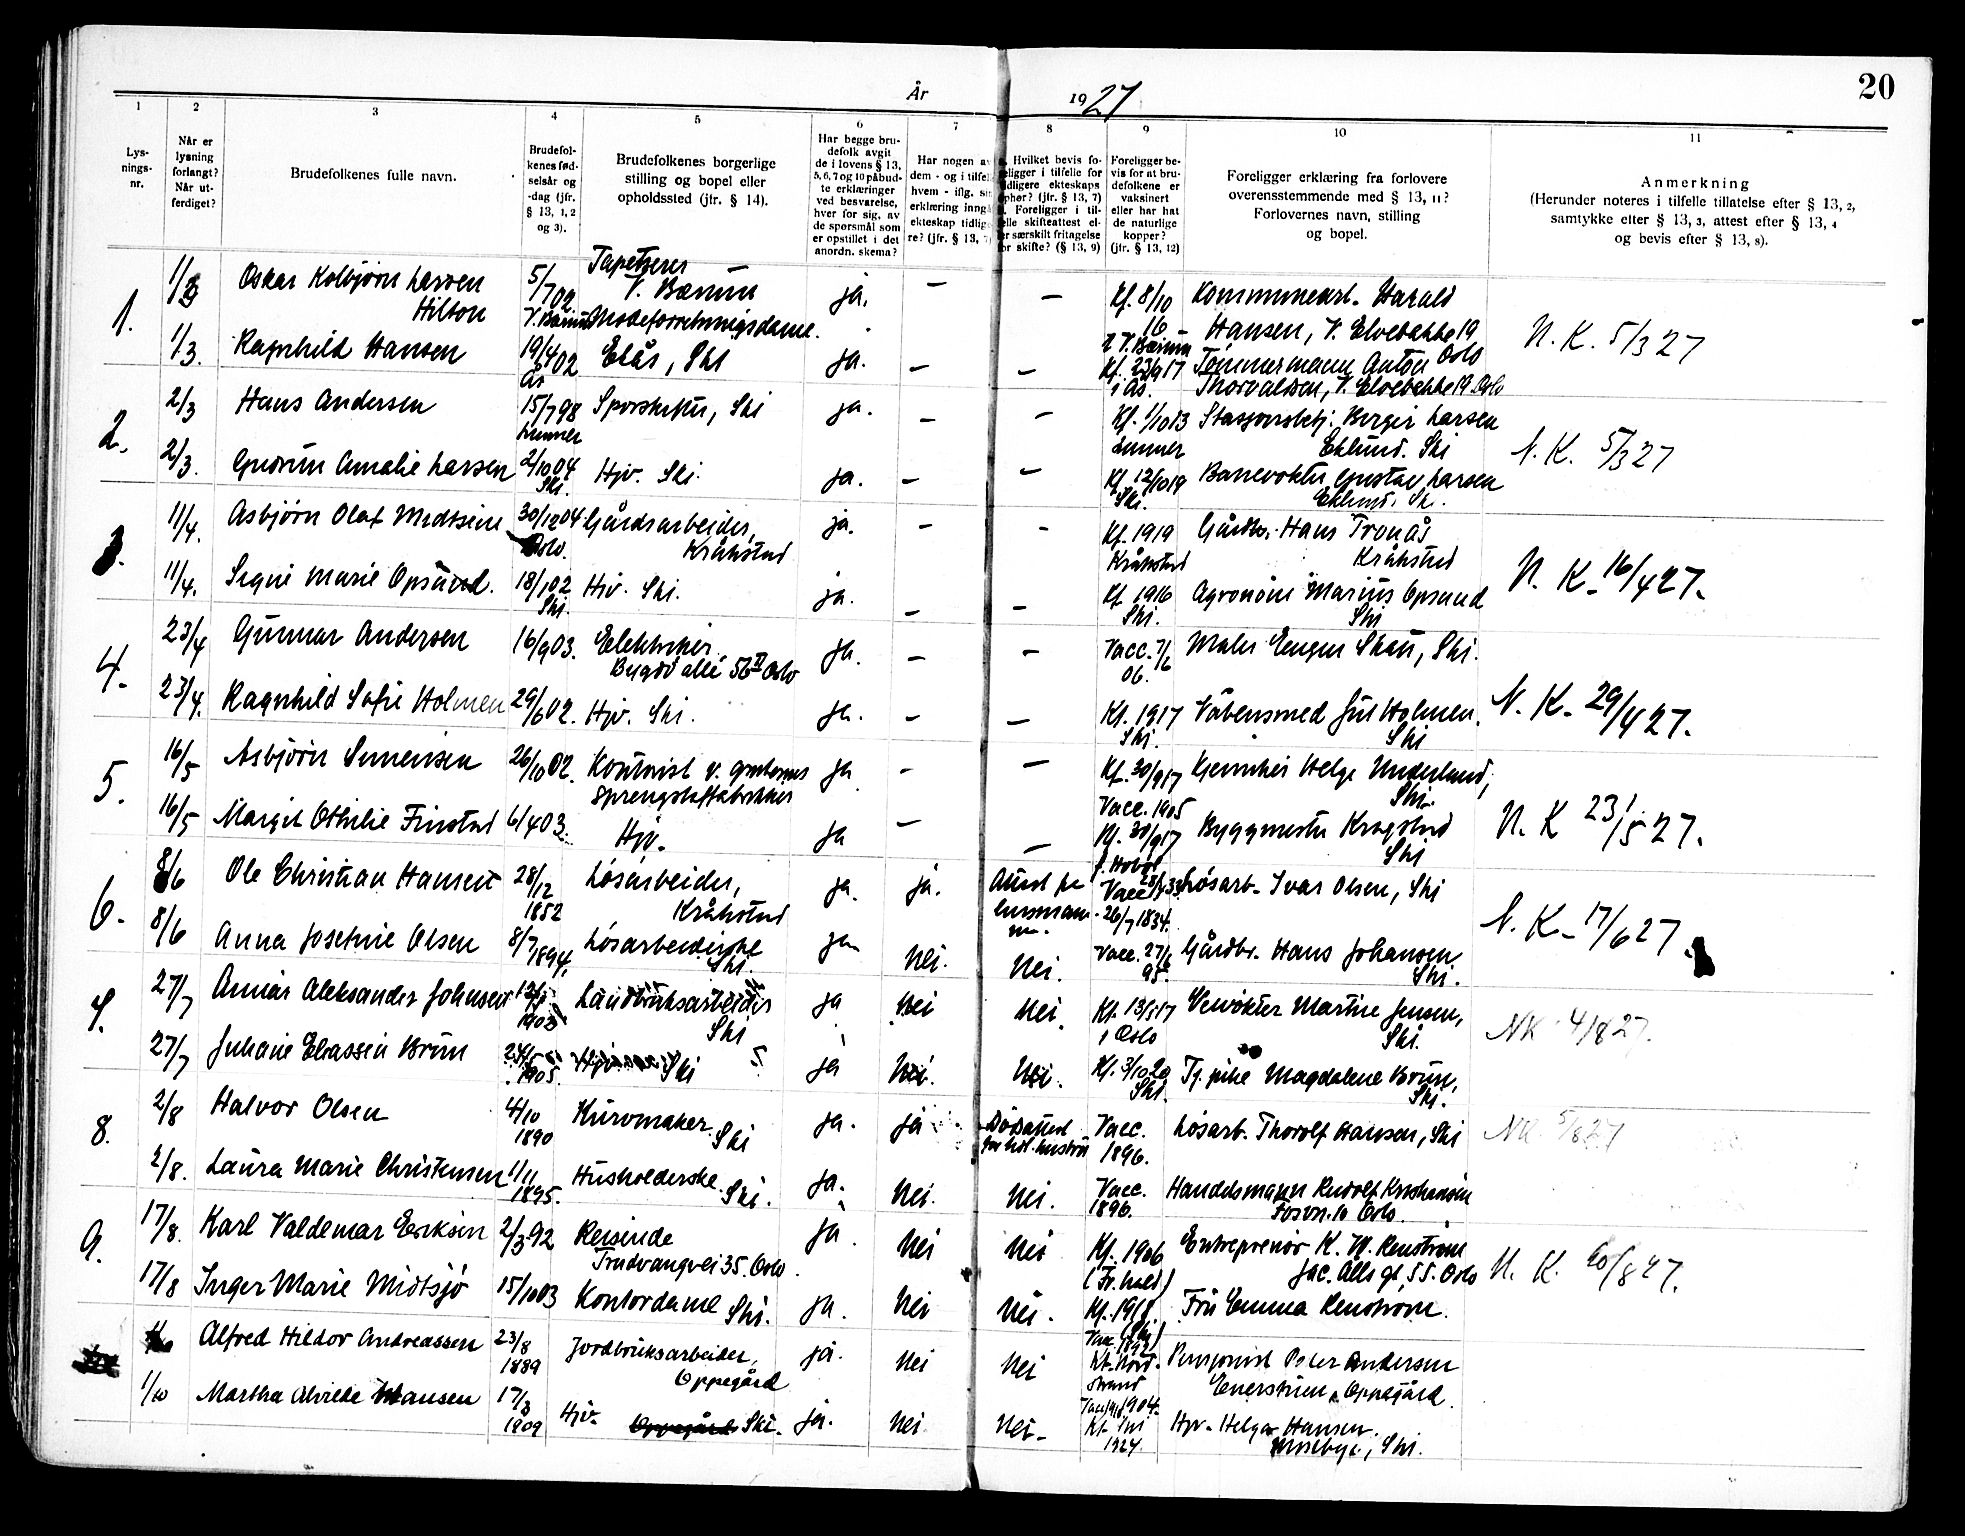 20
År 1927
1 2 3 4 5 6 7 8 9 10 11
Lys-
nings-
nr.
Når er
lysning
forlangt?
Når ut-
ferdiget?
Brudefolkenes fulle navn.
Brudefol-
kenes fød-
selsår og
-dag (jfr.
§ 13, 1, 2
og 3).
Brudefolkenes borgerlige
stilling og bopel eller
opholdssted (jfr. § 14).
Har begge bru-
defolk avgit
de i lovens § 13,
5, 6, 7 og 10 påbud-
te erklæringer
ved besvarelse,
hver for sig, av
de spørsmål som
er opstillet i det
anordn. skema?
Har nogen av
dem - og i tilfelle
hvem - iflg. sin
erklæring inngå
ekteskap tidlige
re? (jfr. § 13, 7)
Hvilket bevis fo-
religger i tilfelle for
tidligere ekteskaps
ophør? (jfr. § 13, 7)
Foreligger i til-
felle skifteattest el-
ler særskilt fritagelse
for skifte? (§ 13, 9)
Foreligger be-
vis for at bru-
defolkene er
vaksinert
eller har hat
de naturlige
kopper?
(jfr. § 13, 12)
Foreligger erklæring fra forlovere
overensstemmende med § 13, 11?
Forlovernes navn, stilling
og bopel.
Anmerkning
(Herunder noteres i tilfelle tillatelse efter § 13, 2,
samtykke efter § 13, 3, attest efter § 13, 4
og bevis efter § 13, 8).
1. 1/3 Oskar Kolbjørn Larsen
Hilton 5/7 02 V. Bærum Tapetserer
V. Bærum ja. — — Kf. 8/10
16
i V. Bærum Kommunearb. Harald
Hansen, V. Elvebakke 19
Oslo N. K. 5/3 27
1/3. Ragnhild Hansen 19/4 02
Ås Modeforretningsdame.
Ski ja. — — Kf. 23/9 17
i Ås. Tømmermann Anton
Thorvaldsen, V. Elvebakke 19 Oslo
2. 2/3 Hans Andersen 15/7 98
Lunner Sporskifter, Ski ja. — — Kf. 1/10 13
Lunner Stasjonsbetj. Birger Larsen
Eklund. Ski N. K. 5/3 27
2/3. Gudrun Amalie Larsen 2/10 04
Ski. Hjv. Ski. ja. — — Kf 12/10 19
Ski. Banevokter Gustav Larsen
Eklund. Ski.
3. 11/4. Asbjørn Olaf 30/12 04
Oslo. Gårdsarbeider,
Kråkstad ja. — - Kf. 1919
Kråkstad Gårdbr. Hans Tronås
Kråkstad N. K. 16/4 27.
11/4. Signe Marie Opsund. 18/1 02
Ski. Hjv. Ski. ja. — — Kf 1916
Ski. Agronom Marius Opsund
Ski
4. 23/4 Gunnar Andersen 16/9 03. Elektriker
Bygdø allé 56 II Oslo ja. — — Vacc. 7/6
06. Maler Eugen Skau, Ski. N. K. 29/4 27.
23/4. Ragnhild Sofie Holmen 29/6 02. Hjv. Ski. ja. — — Kf. 1917
Ski. Våbensmed Jul Holmen.
Ski
5. 16/5 Asbjørn Simensen 26/10 02. Kontorist v.
Sprengstoffabrikker ja — — Kf. 30/9 17
Vacc. 1905 Helge Underland,
Ski. N. K 23/5 27.
16/5 Margit Othilie Finstad 6/4 03. Hjv. ja — — Kf. 30/9 17
i Hobøl Byggmester Kragstad
Ski
6. 8/6 Ole Christian Hansen 28/12
1852 Løsarbeider,
Kråkstad ja. ja. Attest fra
lensmann- Vacc. Løsarb. Ivar Olsen, Ski N. K. 17/6 27.
8/6 Anna Josefine Olsen 8/7 1894. Løsarbeiderske
Ski. ja Nei. Nei. Vacc. 27/6
95. Gårdbr. Hans Johansen
Ski.
27/7 Aleksander Johnsen Landbruksarbeider
Ski ja Nei Nei Kf. 13/5 17
i Oslo Veivokter Martin Jensen,
Ski. NK 4/8 27.
27/7 Juliane Eliassen Brun 24/5
1905. Ski ja Nei. Nei. Kf. 3/10 20
Ski. Tj. pike Magdalene Brun,
Ski.
8. 2/8 Halvor Olsen 4/10
1890 Kurvmaker
Ski ja. ja Dødsattest
for hustru Vacc.
1896. Løsarb. Thorolf Hansen, Ski NK. 5/8 27
2/8. Laura Marie Christensen 1/11
1895. Husholderske
Ski. ja. Nei. Nei. Vacc.
1896. Handelsmann Rudolf Kristiansen
Fosvn. 10 Oslo.
9. 17/8. Karl Valdemar Eriksen 2/3 92 Reisende
Trudvangvei 35. Oslo. ja. Nei Nei Kf. 1906
(Fr.hald) Entreprenør K. M. Renstrøm
Jac. Alls gt. 55. Oslo N. K. 20/8 27.
17/8 Inger Marie Midtsjø 15/10 03 Kontordame Ski. ja. Nei Nei. Kf. 1918.
(Ski) Fru Emma Renstrøm.
Alfred Hildor Andreassen 23/8
1889 Jordbruksarbeider,
Oppegård ja. Nei Nei Vacc. 1892
Kf. Nord-
strand Pensjonist Peter Andersen
Oppegård.
1/10 Martha Alvilde Hansen 17/3
1909 Hjv. Oppegård Ski. ja. Nei. Nei. Kf. Ski
1924. Hjv. Helga Hansen.
Ski.